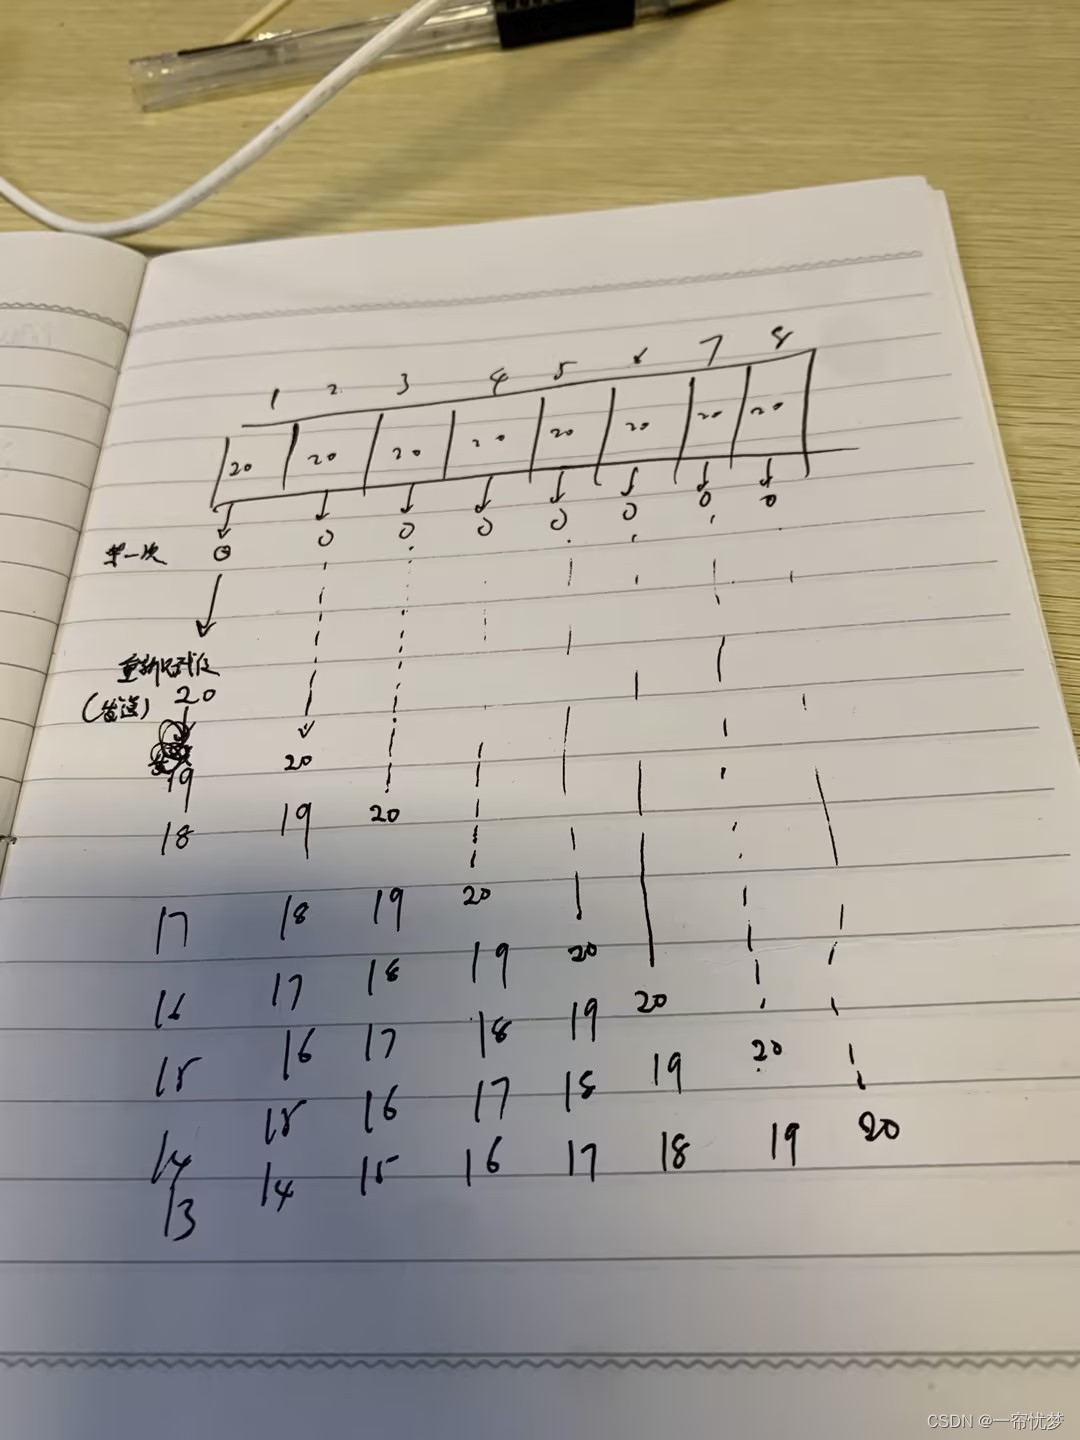 1 2 3 4 5 6 7 8
20 20 20 20 20 20 20 20
第一次 0 0 0 0 0 0 0 0
重新赋值
(发送) 20
19 20
18 19 20
17 18 19 20
16 17 18 19 20
15 16 17 18 19 20
14 15 16 17 18 19 20
13 14 15 16 17 18 19 20
CSDN @一帘忧梦